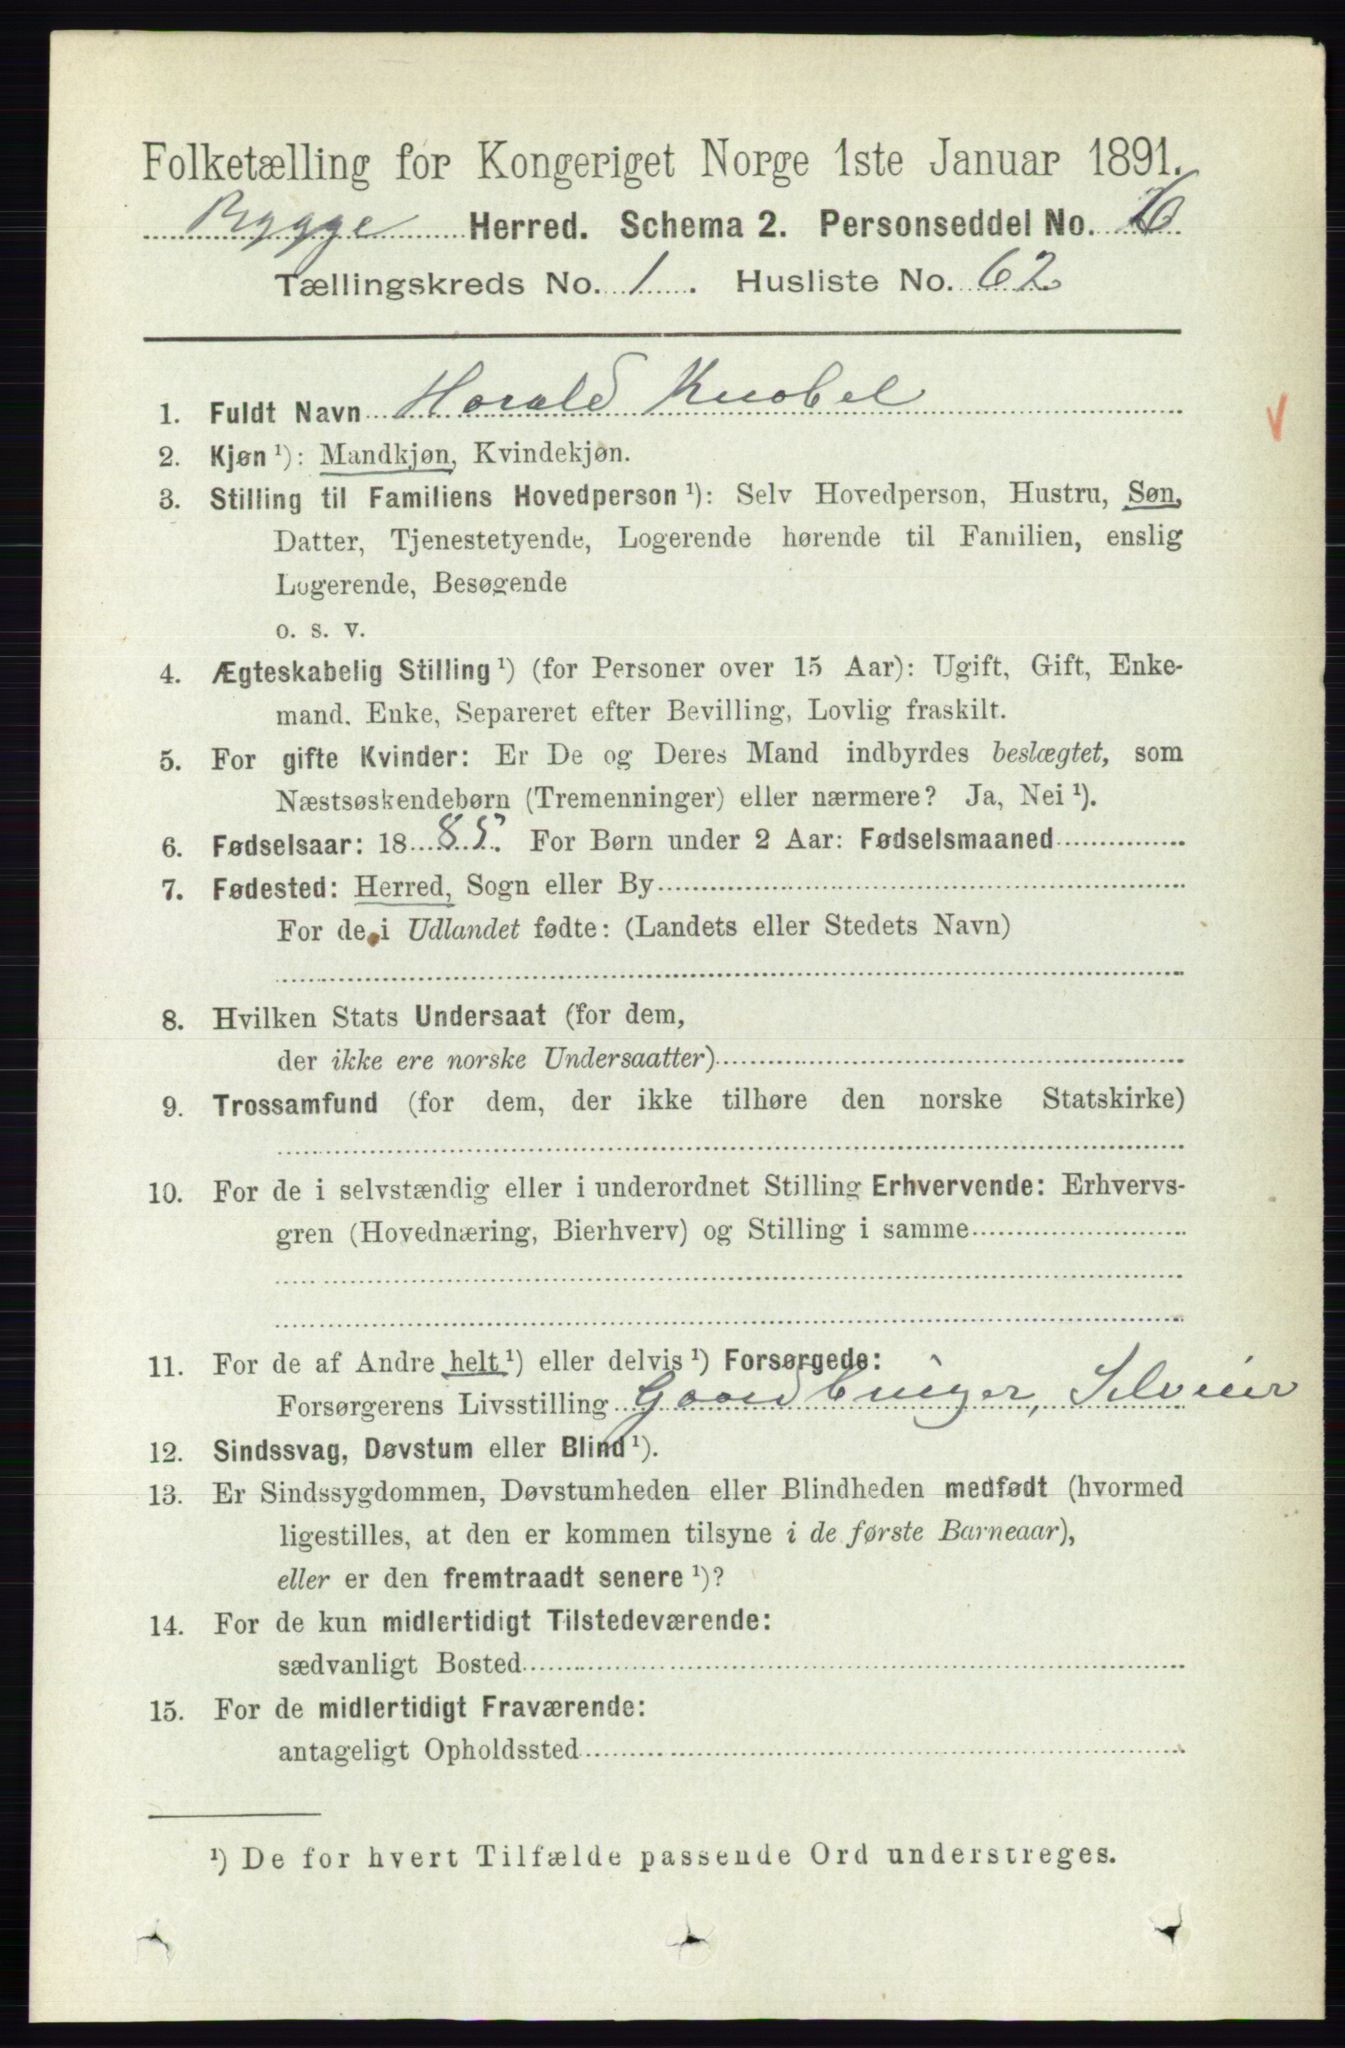 Folketælling for Kongeriget Norge 1ste Januar 1891.
Rygge Herred. Schema 2. Personseddel No. 16
Tællingskreds No. 1. Husliste No. 62
1. Fuldt Navn Harald Knobel
2. Kjøn ¹): Mandkjøn, Kvindekjøn.
3. Stilling til Familiens Hovedperson ¹): Selv Hovedperson, Hustru, Søn,
Datter, Tjenestetyende, Logerende hørende til Familien, enslig
Logerende, Besøgende
o. s. v.
4. Ægteskabelig Stilling ¹) (for Personer over 15 Aar): Ugift, Gift, Enke-
mand, Enke, Separeret efter Bevilling, Lovlig fraskilt.
5. For gifte Kvinder: Er De og Deres Mand indbyrdes beslægtet, som
Næstsøskendebørn (Tremenninger) eller nærmere? Ja, Nei ¹).
6. Fødselsaar: 1885. For Børn under 2 Aar: Fødselsmaaned
7. Fødested: Herred, Sogn eller By
For de i Udlandet fødte: (Landets eller Stedets Navn)
8. Hvilken Stats Undersaat (for dem,
der ikke ere norske Undersaatter)
9. Trossamfund (for dem, der ikke tilhøre den norske Statskirke)
10. For de i selvstændig eller i underordnet Stilling Erhvervende: Erhvervs-
gren (Hovednæring, Bierhverv) og Stilling i samme
11. For de af Andre helt ¹) eller delvis ¹) Forsørgede:
Forsørgerens Livsstilling Gaardbruger, Selveier
12. Sindssvag, Døvstum eller Blind ¹).
13. Er Sindssygdommen, Døvstumheden eller Blindheden medfødt (hvormed
ligestilles, at den er kommen tilsyne i de første Barneaar),
eller er den fremtraadt senere ¹)?
14. For de kun midlertidigt Tilstedeværende:
sædvanligt Bosted
15. For de midlertidigt Fraværende:
antageligt Opholdssted
¹) De for hvert Tilfælde passende Ord understreges.